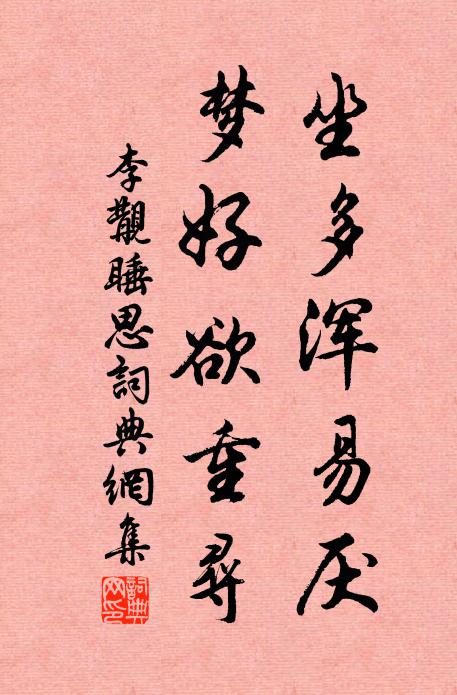 坐多浑易厌
梦好欲重寻
李觏睡思詞典網集
詞典网印